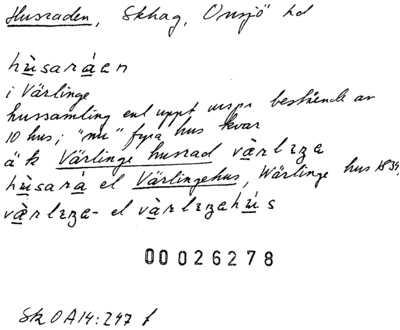 Husraden, Skhag, Onsjö hd
hùsaráen
i Värlinge
hussamling enl uppt urspr bestående av
10 hus; "nu" fyra hus kvar
ä k Värlinge husrad värlɪza
hùsará el Värlingehus, Wärlinge hus 1839,
värlɪza- el värlɪzahús
00026278
Sk OA14:247 f